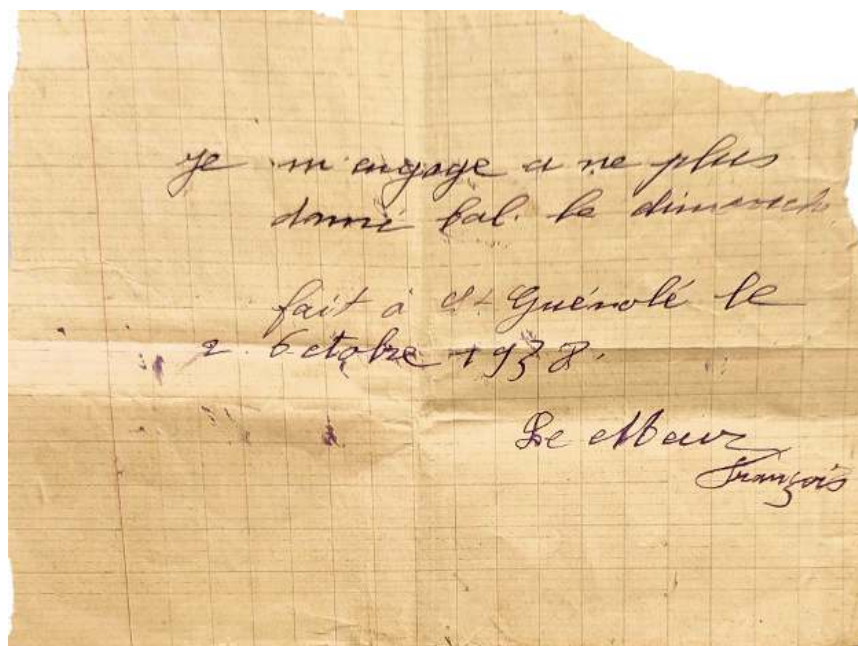 je m'engage a ne plus
donné bal. le dimanche
fait à St Guénolé le
2. Octobre 1938.
Le Meur
François